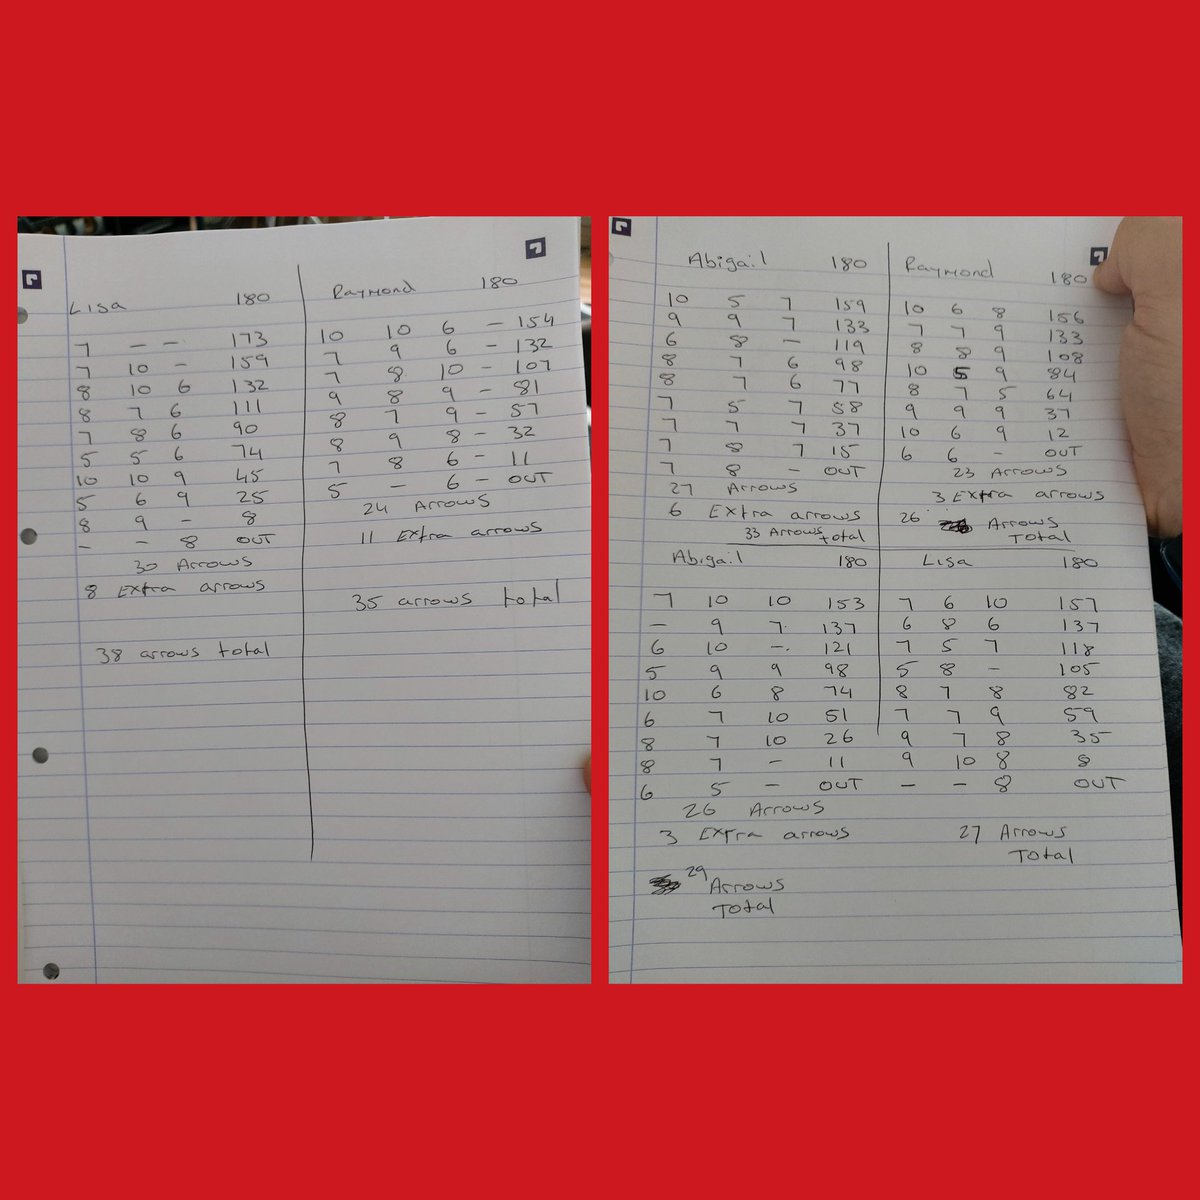 Lisa 180
7 - - 173
7 10 - 159
8 10 6 132
8 7 6 111
7 8 6 90
5 5 6 74
10 10 9 45
5 6 9 25
8 9 - 8
- - 8 OUT
30 Arrows
8 Extra arrows
38 arrows total
Raymond 180
10 10 6 - 154
7 9 6 - 132
7 8 10 - 107
9 8 9 - 81
8 7 9 - 57
8 9 8 - 32
7 8 6 - 11
5 - 6 - OUT
24 Arrows
11 Extra arrows
35 arrows total
Abigail 180
10 5 7 159
9 9 7 133
6 8 - 119
8 7 6 98
8 7 6 77
7 5 7 58
7 7 7 37
7 8 7 15
7 8 - OUT
27 Arrows
6 Extra arrows
33 Arrows total
Raymond 180
10 6 8 156
7 7 9 133
8 8 9 108
10 5 9 84
8 7 5 64
9 9 9 37
10 6 9 12
6 6 - OUT
23 Arrows
3 Extra arrows
26 Arrows
Total
Abigail 180
7 10 10 153
- 9 7. 137
6 10 -. 121
5 9 9 98
10 6 8 74
6 7 10 51
8 7 10 26
8 7 - 11
6 5 - OUT
26 Arrows
3 Extra arrows
29 Arrows
Total
Lisa 180
7 6 10 157
6 8 6 137
7 5 7 118
5 8 - 105
8 7 8 82
7 7 9 59
9 7 8 35
9 10 8 8
- - 8 OUT
27 Arrows
Total